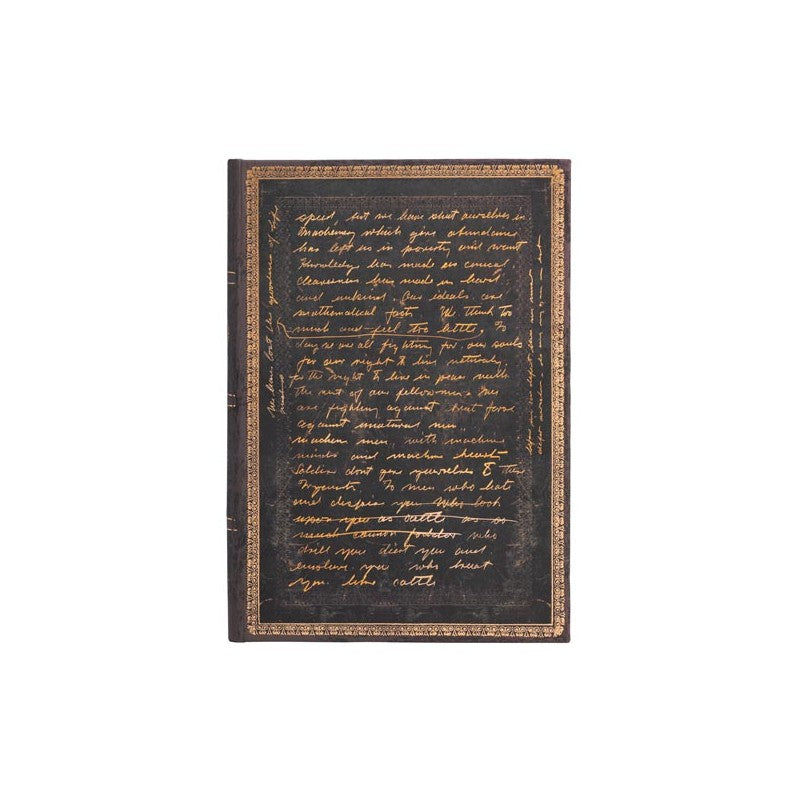 speed, but we have shut ourselves in
Machinery which gives abundance
has left us in poverty and want
Knowledge has made us
cleverness has made us hard
and unkind. Our ideals are
mathematical facts. We think too
much and feel too little. To
day we are all fighting for our souls
for our right to live naturally,
for the right to live in peace with
the rest of our fellow men. We
are fighting against
against unatural men
machen men, with machine
minds and machine hearts
Soldiers dont give yourselves to these
To men who hate
and despise you who look
upon you as cattle as so
much cannon fodder who
drill you diet you and
enslave you who treat
you like cattle
We have lost the of life